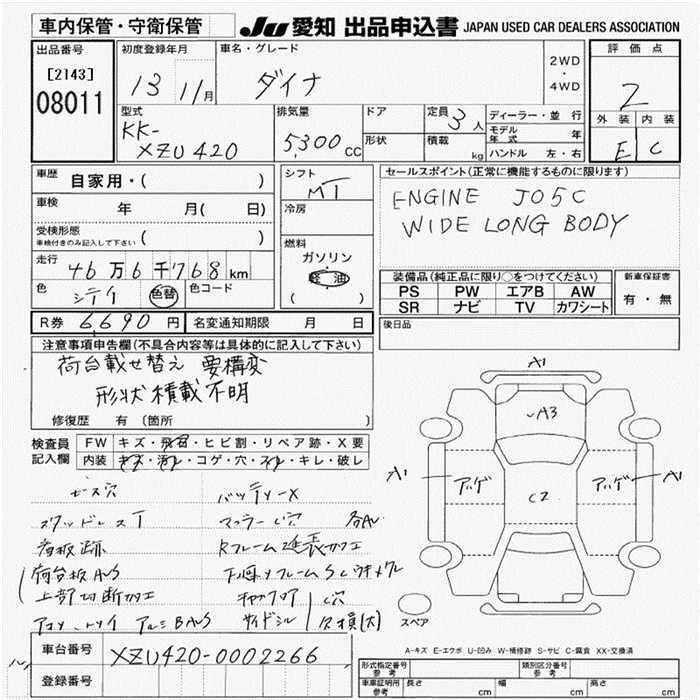 車内保管・守衛保管
JU 愛知 出品申込書 JAPAN USED CAR DEALERS ASSOCIATION
出品番号
[2143]
08011
初度登録年月
13 11月
車名・グレード
ダイナ
2WD
・
4WD
評価点
2
外装 内装
E C
型式
KK-
XZU420
排気量
5,300 CC
ドア
形状
定員 3人
積載 kg
ディーラー・並行
モデル年式 年
ハンドル 左・右
車歴 自家用・( )
車検 年 月( 日)
受検形態
車検付きのみ記入して下さい ( )
走行 46万6千768km
色 シテイ 色替 色コード
シフト
MT
冷房
燃料
ガソリン
軽油
( )
セールスポイント(正常に機能するものに限ります)
ENGINE J05C
WIDE LONG BODY
装備品(純正品に限り○をつけてください)
PS PW エアB AW
SR ナビ TV カワシート
新車保証書
有・無
R券 6690円 名変通知期限 月 日
後日品
注意事項申告欄(不具合内容等は具体的に記入して下さい)
荷台載せ替え 要構変
形状積載不明
修復歴 有 〔箇所 〕
検査員
記入欄
FW キズ・飛石・ヒビ割・リペア跡・X要
内装 キズ・汚れ・コゲ・穴・スレ・キレ・破レ
ビス穴 バッテリーX
スタッドレスT マフラー穴
看板跡 Rフレーム延長加工
荷台板 下廻りフレーム
上部切断加工 穴
欠損(大)
A1
A3
A1 アハゲ C2 アハゲ A1
スペア
A-キズ E-エクボ U-凹み W-補修跡 S-サビ C-腐食 XX-交換済
車台番号 XZU420-0002266
登録番号
形式指定番号
参考
類別区分番号
参考
車庫証明用
参考
長さ cm 幅 cm 高さ cm